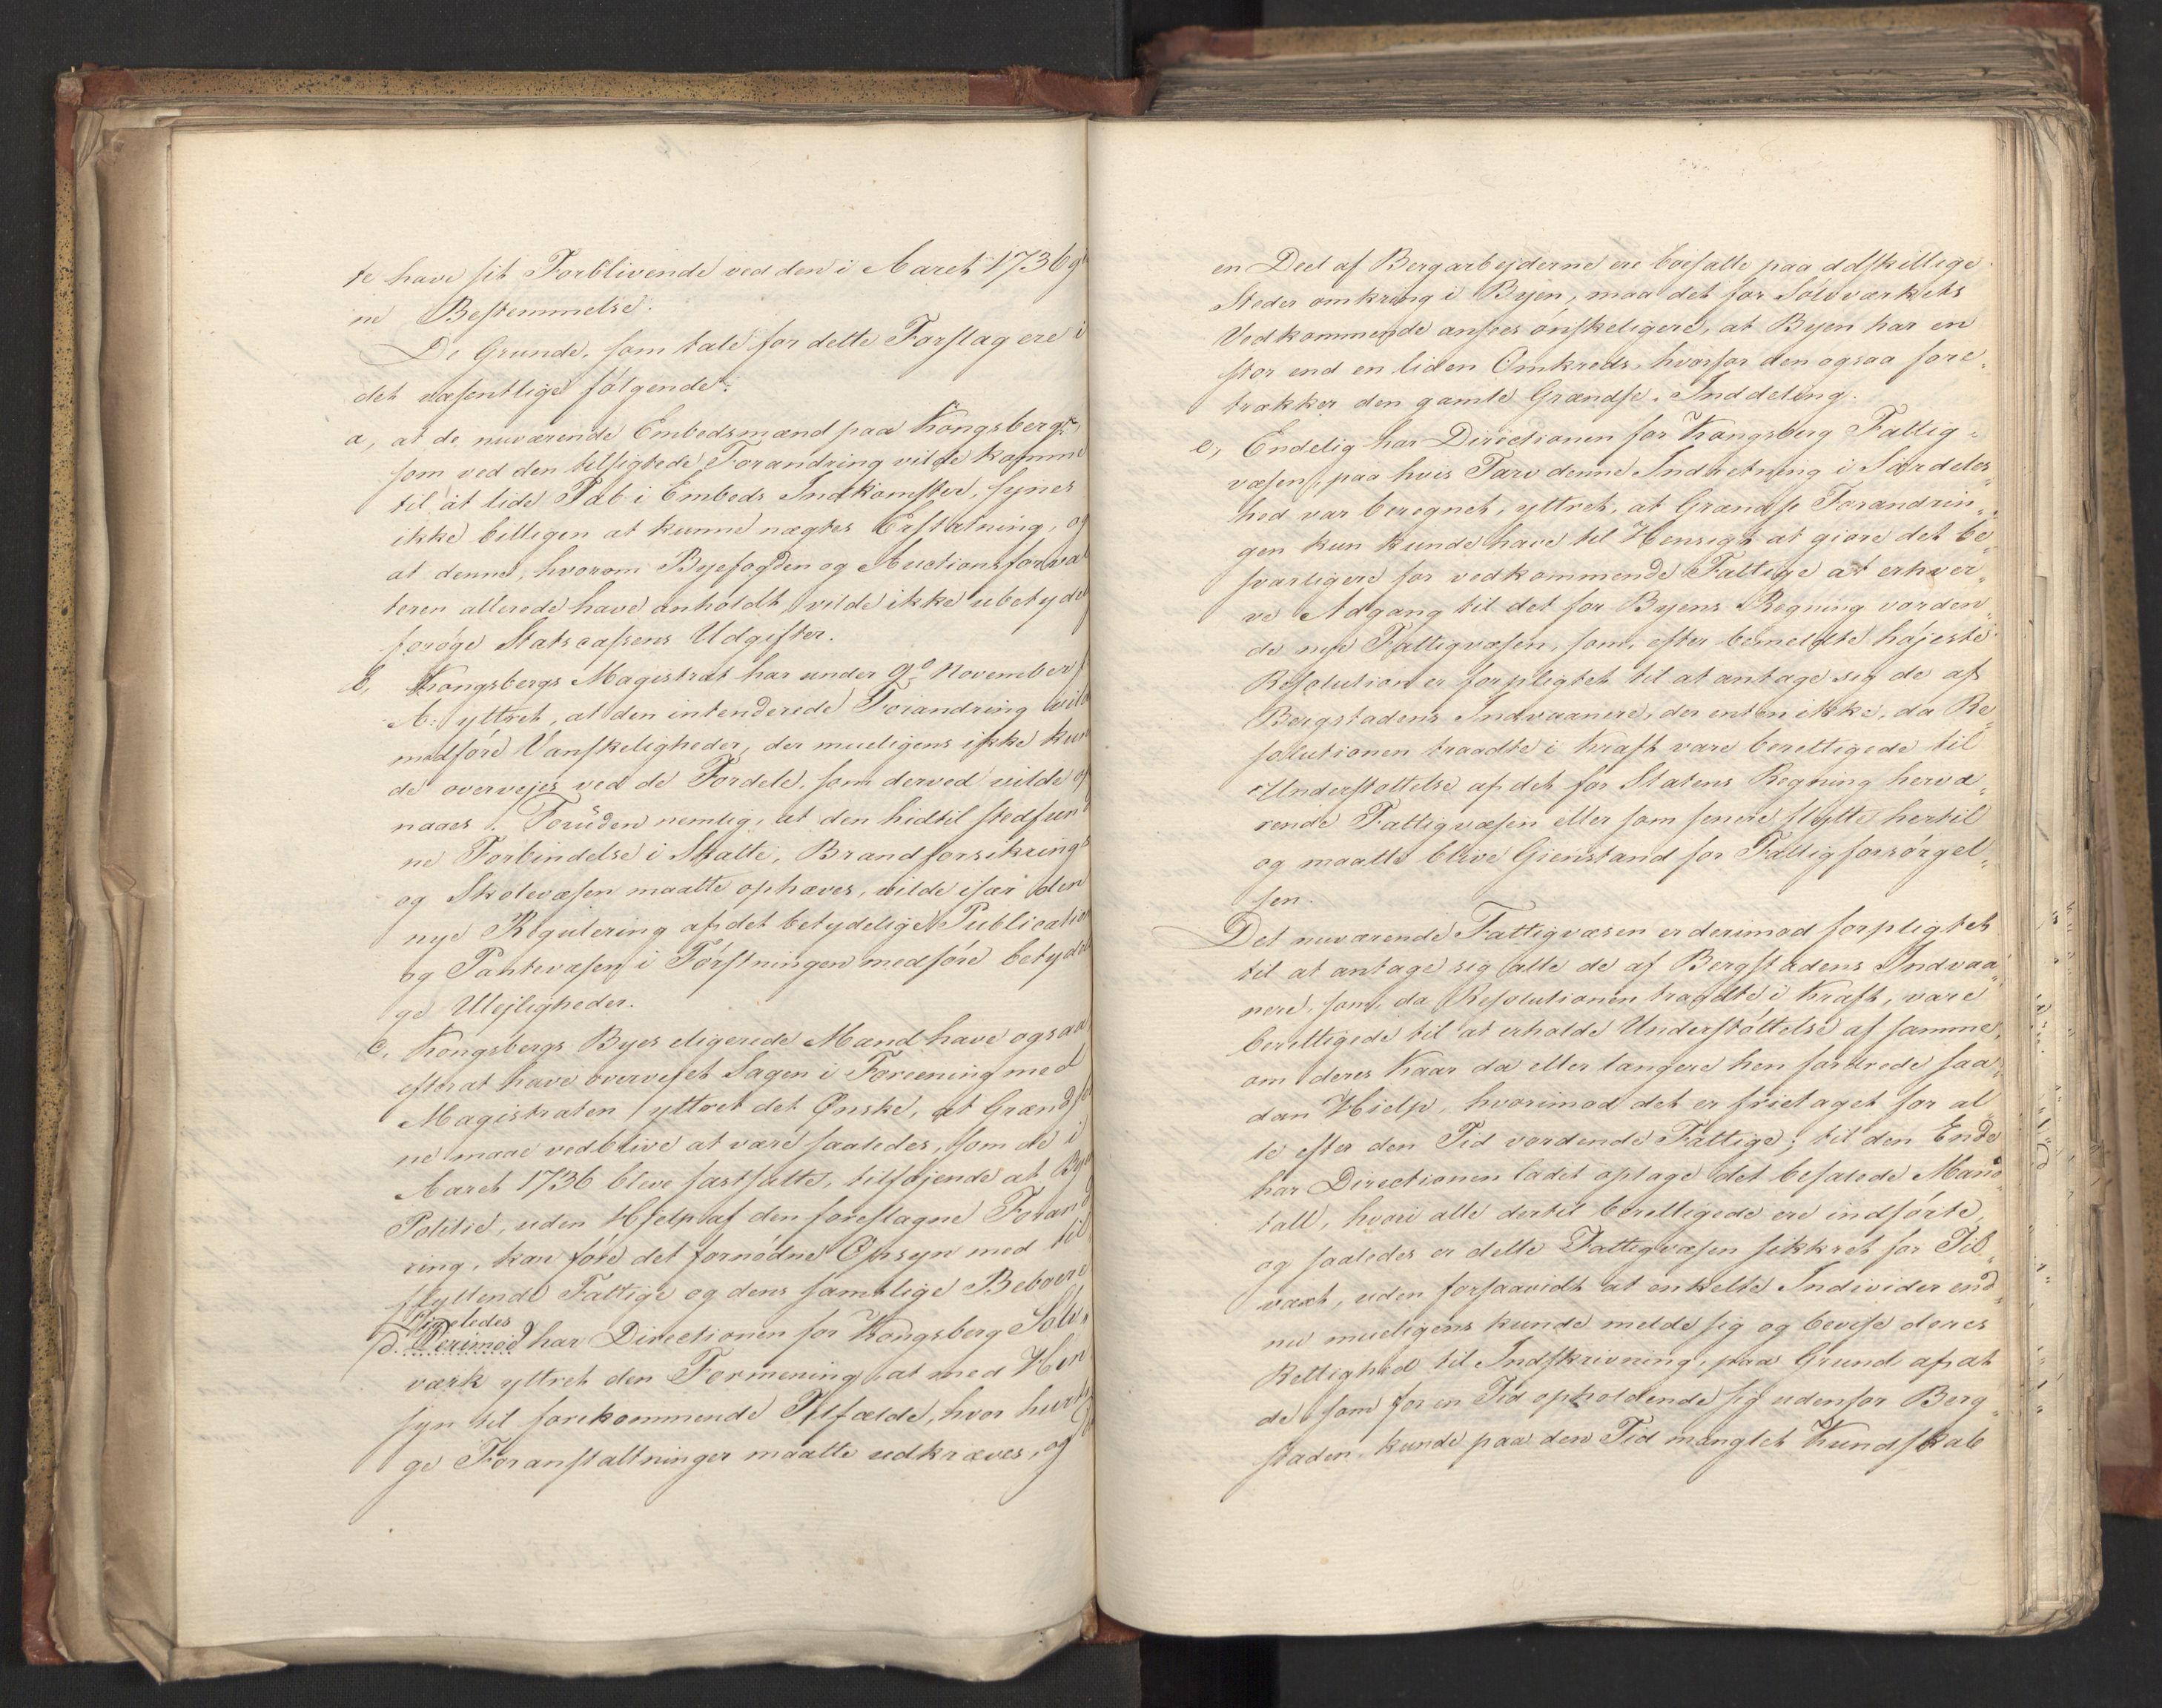 te have sit Forblivende ved den i Aaret 1736 g
ne Bestemmelse.
De Grunde, som tale for dette Forslag ere i
det væsentlige følgende:
a, at de nuværende Embedsmænd paa Kongsberg,
som ved den tilsigtede Forandring vilde komme
til at lide Tab i Embeds Indkomster, synes
ikke billigen at kunne nægtes Erstatning, og
at denne, hvorom Byefogden og Auctionsforval
teren allerede have anholdt, vilde ikke ubetyde
forøge Statscassens Udgifter.
b, Kongsbergs Magistrat har under 9de November f
A: yttret, at den intenderede Forandring vil
medføre Vanskeligheder, der mueligens ikke kun
de overvejes ved de Fordele, som derved vilde op
naaes. Foruden nemlig, at den hidtil stedfun
ne Forbindelse i Skatte, Brandforsikrings
og Skolevæsen maatte ophæves, vilde især den
nye Regulering af det betydelige Publication
og Pantevæsen i Førstningen medføre betyde
ge Ulejligheder.
c, Kongsbergs Byes eligerede Mænd have ogsaa
efter at have overvejet Sagen i Foreening med
Magistraten yttret det Ønske, at Grændse
ne maae vedblive at være saaledes, som de i
Aaret 1736 bleve fastsatte, tilføjende at Bye
Politie, uden Hjelp af den foreslagne Forand
ring, kan føre det fornødne Opsyn med til
flyttende Fattige og dens samtlige Beboere
Ligeledes
d. Derimod har Directionen for Kongsberg Sølv„
værk yttret den Formening, at med Hen
syn til forekommende Tilfælde, hvor hurti
ge Foranstaltninger maatte udkræves, og
en Deel af Bergarbejderne ere boesatte paa adskillige
Steder omkring i Byen, maa det for Sølvværkets
Vedkommende ansees ønskeligere, at Byen har en
stor end en liden Omkreds, hvorfor den ogsaa fore„
trækker den gamle Grændse-Inddeling.
e, Endelig har Directionen for Kongsberg Fattig„
væsen, paa hvis Tarv denne Indretning i Særdeles„
hed var beregnet, yttret, at Grændse Forandrin„
gen kun kunde have til Hensigt at giøre det be„
sværligere for vedkommende Fattige at erhver„
ve Adgang til det for Byens Regning vorden„
de nye Fattigvæsen, som, efter bemeldte højeste
Resolution er forpligtet til at antage sig de af
Bergstadens Indvaanere, der enten ikke, da Re„
solutionen traadte i Kraft vare berettigede til
Understøttelse af det for Statens Regning hervæ„
rende Fattigvæsen eller som senere flytte hertil
og maatte blive Gienstand for Fattigforsørgel„
sen.
Det nuværende Fattigvæsen er derimod forpligtet
til at antage sig alle de af Bergstadens Indvaa„
nere, som, da Resolutionen traadte i Kraft, vare
berettigede til at erholde Understøttelse af samme,
om deres Kaar da eller længere hen fordrede saa„
dan Hielp, hvorimod det er frietaget for al„
le efter den Tid vordende Fattige; til den Ende
har Directionen ladet optage det befalede Mand„
tall, hvori alle dertil berettigede ere indførte,
og saaledes er dette Fattigvæsen sikkret for Til„
væxt, uden forsaavidt at enkelte Individer end„
nu mueligens kunde melde sig og bevise deres
Rettighed til Indskrivning, paa Grund af at
de som for en Tid opholdende sig udenfor Berg„
staden, kunde paa den Tid manglet Kundskab